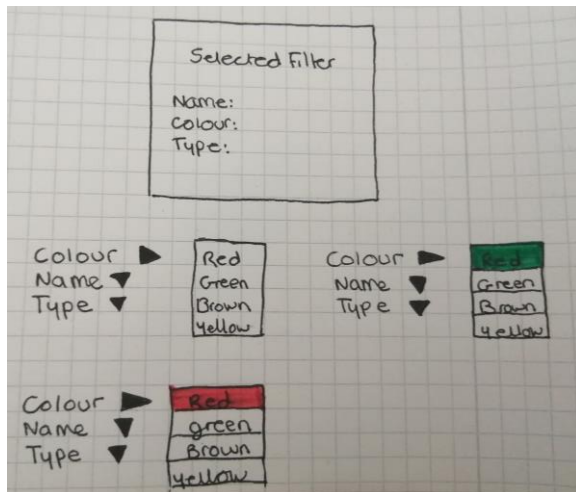 Selected Filter
Name:
Colour:
Type:
Colour
Name
Type
Red
Green
Brown
Yellow
Colour
Name
Type
Red
Green
Brown
Yellow
Colour
Name
Type
Red
green
Brown
yellow